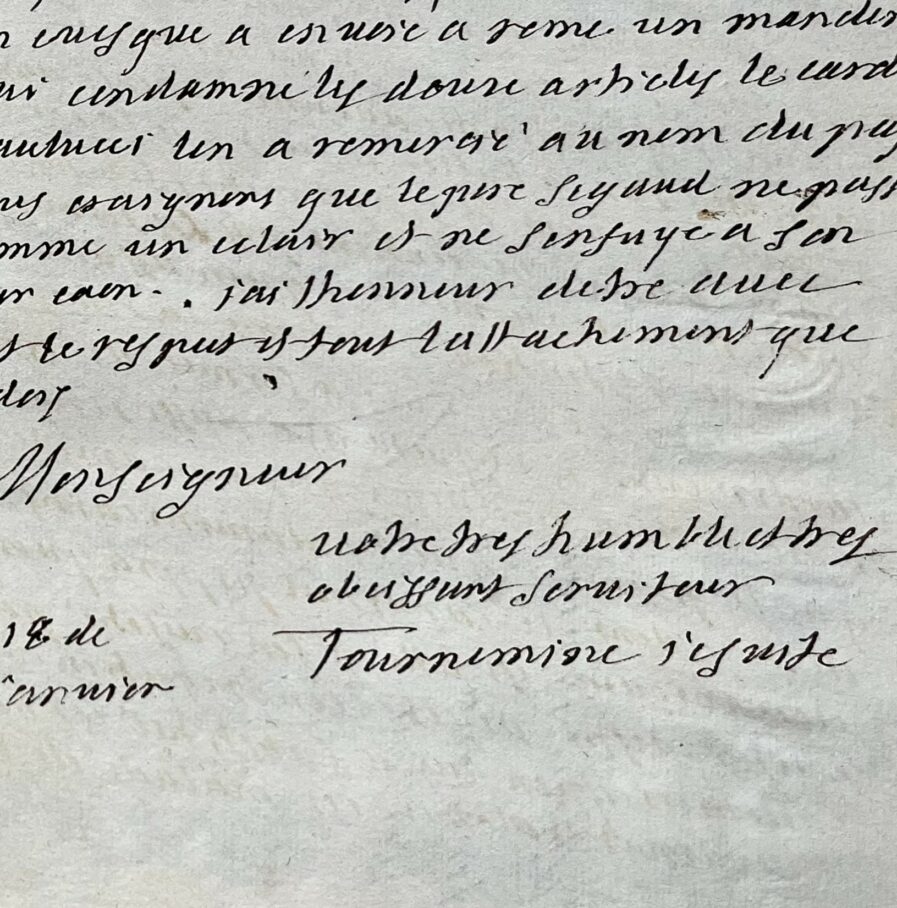 euesque a enuoié a rome un mande
ui condamne les douze articles le card
paulucci len a remercié au nom du pa
us craignons que le pere Segaud ne pass
omme un eclair et ne senfuye a son
ur caen. jai lhonneur detre auec
t le respect et tout lattachement que
dois
Monseigneur
uotre tres humble et tres
obeissant seruiteur
18 de
Tournemine jesuite
januier